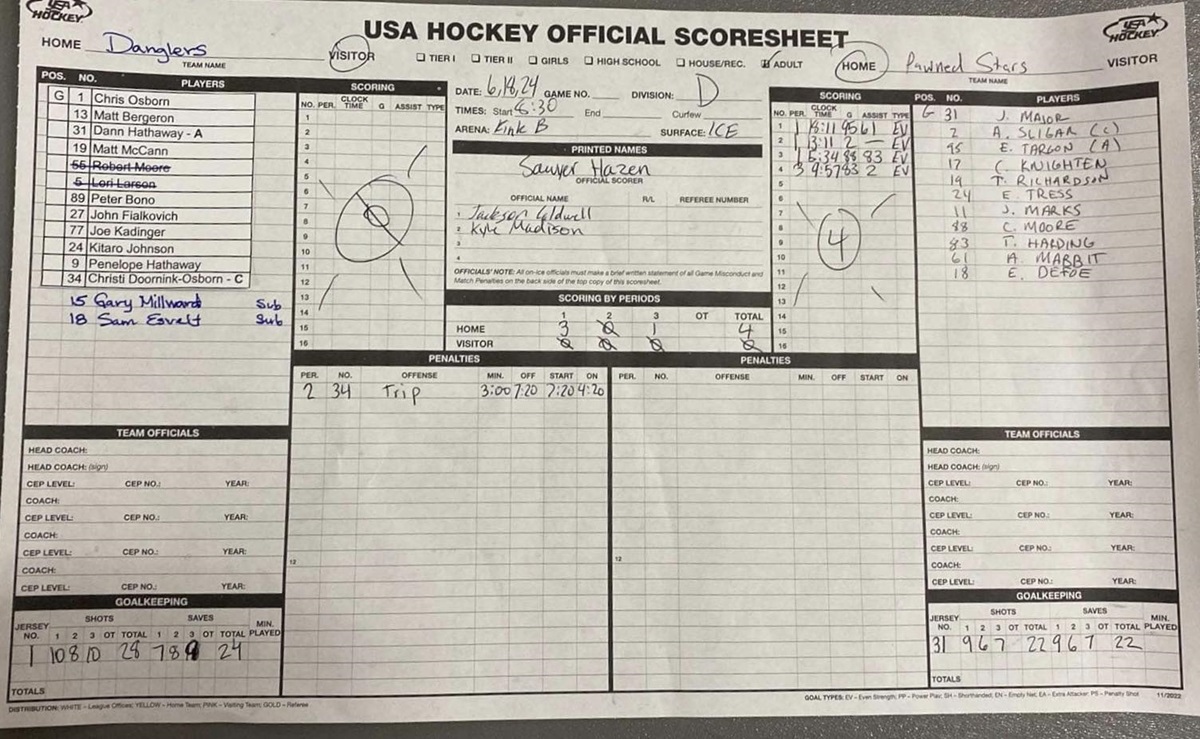 USA HOCKEY
USA HOCKEY OFFICIAL SCORESHEET
USA HOCKEY
HOME Danglers VISITOR
TEAM NAME
TIER I TIER II GIRLS HIGH SCHOOL HOUSE/REC. ADULT
HOME Pawned Stars VISITOR
TEAM NAME
POS. NO. PLAYERS
G 1 Chris Osborn
13 Matt Bergeron
31 Dann Hathaway - A
19 Matt McCann
55 Robert Moore
5 Lori Larson
89 Peter Bono
27 John Fialkovich
77 Joe Kadinger
24 Kitaro Johnson
9 Penelope Hathaway
34 Christi Doornink-Osborn - C
15 Gary Millward Sub
18 Sam Esvelt Sub
SCORING
NO. PER. CLOCK TIME G ASSIST TYPE
1
2
3
4
5
6
7
8
9
10
11
12
13
14
15
16
0
DATE: 6,18,24 GAME NO. DIVISION: D
TIMES: Start 8:30 End Curfew
ARENA: Rink B SURFACE: ICE
PRINTED NAMES
Sawyer Hazen
OFFICIAL SCORER
OFFICIAL NAME R/L REFEREE NUMBER
1 Jackson Coldwell
2 Kyle Madison
3
4
OFFICIALS' NOTE: All on-ice officials must make a brief written statement of all Game Misconduct and
Match Penalties on the back side of the top copy of this scoresheet.
SCORING BY PERIODS
1 2 3 OT TOTAL
HOME 3 0 1 4
VISITOR 0 0 0 0
SCORING
NO. PER. CLOCK TIME G ASSIST TYPE
1 1 95 61 EV
2 1 13:11 2 — EV
3 1 6:34 88 83 EV
4 3 9:57 83 2 EV
5
6
7
8
9
10
11
12
13
14
15
16
4
POS. NO. PLAYERS
G 31 J. MAJOR
2 A. SLIGAR (C)
95 E. TARGON (A)
17 C. KNIGHTEN
19 T. RICHARDSON
24 E. TRESS
11 J. MARKS
88 C. MOORE
83 T. HARDING
61 A. MABBIT
18 E. DEFOE
PENALTIES
PER. NO. OFFENSE MIN. OFF START ON
2 34 Trip 3:00 7:20 7:20 4:20
12
PENALTIES
PER. NO. OFFENSE MIN. OFF START ON
12
TEAM OFFICIALS
HEAD COACH:
HEAD COACH: (sign)
CEP LEVEL: CEP NO.: YEAR:
COACH:
CEP LEVEL: CEP NO.: YEAR:
COACH:
CEP LEVEL: CEP NO.: YEAR:
COACH:
CEP LEVEL: CEP NO.: YEAR:
GOALKEEPING
SHOTS SAVES
JERSEY NO. 1 2 3 OT TOTAL 1 2 3 OT TOTAL MIN. PLAYED
1 10 8 10 28 7 8 9 24
TOTALS
TEAM OFFICIALS
HEAD COACH:
HEAD COACH: (sign)
CEP LEVEL: CEP NO.: YEAR:
COACH:
CEP LEVEL: CEP NO.: YEAR:
COACH:
CEP LEVEL: CEP NO.: YEAR:
COACH:
CEP LEVEL: CEP NO.: YEAR:
GOALKEEPING
SHOTS SAVES
JERSEY NO. 1 2 3 OT TOTAL 1 2 3 OT TOTAL MIN. PLAYED
31 9 6 7 22 9 6 7 22
TOTALS
DISTRIBUTION: WHITE – League Offices; YELLOW – Home Team; PINK – Visiting Team; GOLD – Referee
GOAL TYPES: EV – Even Strength; PP – Power Play; SH – Shorthanded; EN – Empty Net; EA – Extra Attacker; PS – Penalty Shot 11/2022